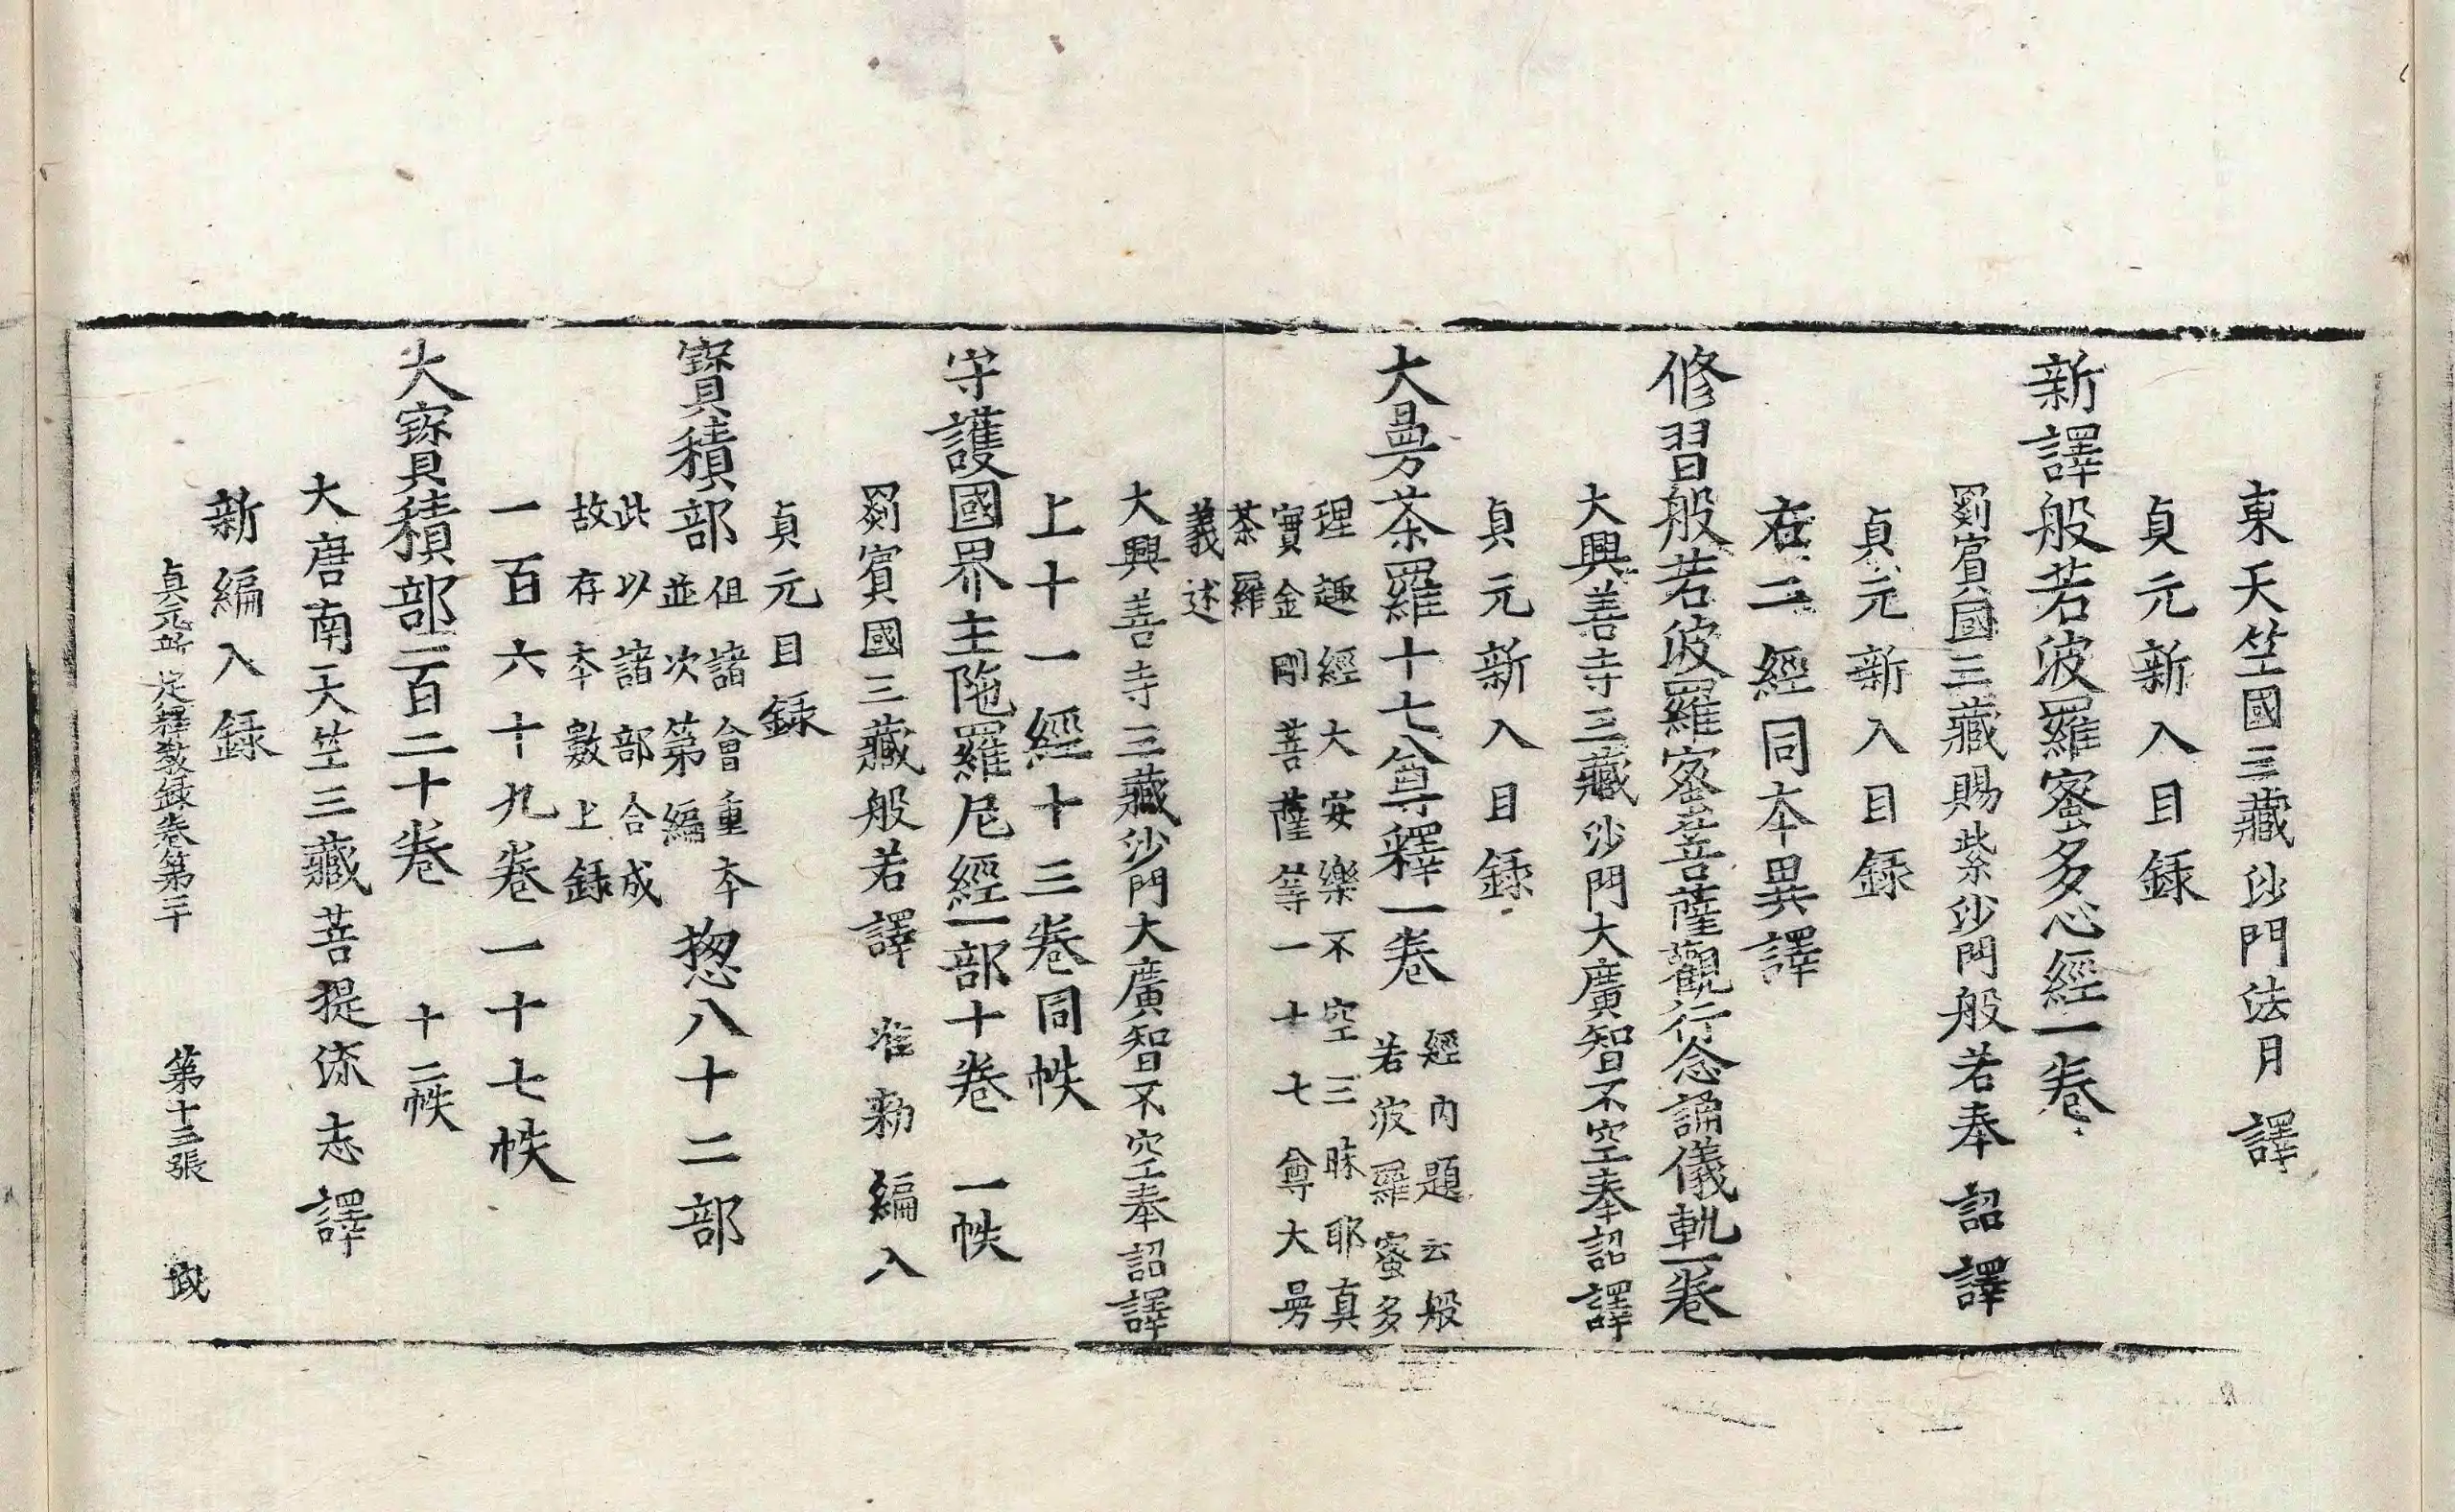 東天竺國三藏沙門法月譯
貞元新入目録
新譯般若波羅蜜多心經一卷
罽賓國三藏賜紫沙門般若奉 詔譯
貞元新入目録
右二經同本異譯
修習般若波羅蜜菩薩觀行念誦儀軌一卷
大興善寺三藏沙門大廣智不空奉詔譯
貞元新入目録
大曼荼羅十七尊釋一卷 經内題云般
若波羅蜜多
理趣經大安樂不空三昧耶真
實金剛菩薩等一十七尊大曼
荼羅
義述
大興善寺三藏沙門大廣智不空奉詔譯
上十一經十三卷同帙
守護國界主陁羅尼經一部十卷 一帙
罽賓國三藏般若譯 准勅編入
貞元目録
寶積部 但諸會重本
並次第編 揔八十二部
此以諸部合成
故存本數上録
一百六十九卷一十七帙
大寶積部一百二十卷 十二帙
大唐南天竺三藏菩提流志譯
新編入録
貞元所定釋教録卷第二十 第十三張